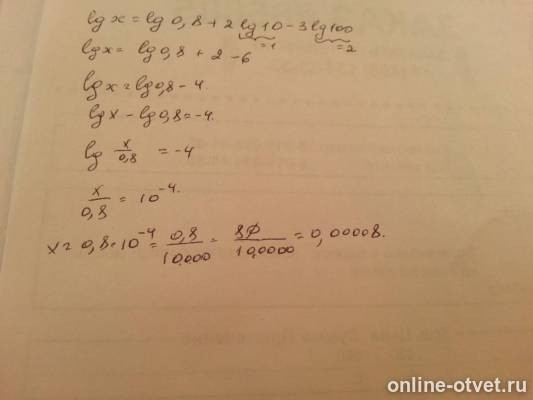 lg x = lg 0,8 + 2 lg 10 - 3 lg 100
=1 =2
lg x = lg 0,8 + 2 - 6
lg x = lg 0,8 - 4.
lg x - lg 0,8 = -4.
lg x/0,8 = -4
x/0,8 = 10^-4.
x = 0,8 · 10^-4 = 0,8/10000 = 8/100000 = 0,00008.
online-otvet.ru